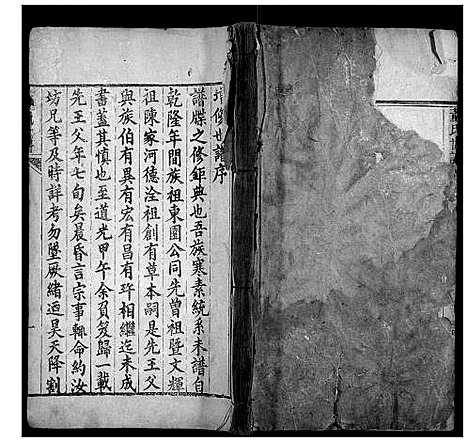 增俢世譜序
譜牒之修鉅典也吾族寒素統系未譜自
乾隆年間族祖東園公同先曾祖暨文輝
祖陳家河德淦祖創有草本嗣是先王父
與族伯有異有宏有昌有玝相繼迄未成
書蓋其慎也至道光甲午余負笈歸一載
先王父年七旬矣晨昏言宗事輒命約汝
坊兄等及時詳考勿墜厥緒迺昊天降割